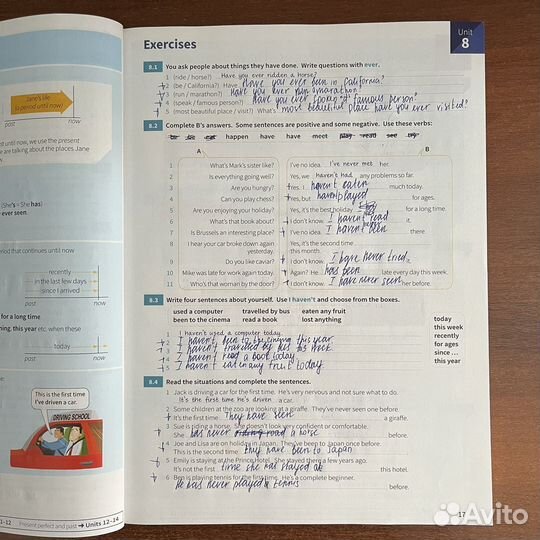 Exercises
Unit
8
8.1 You ask people about things they have done. Write questions with ever.
1 (ride / horse?) Have you ever ridden a horse?
2 (be / California?) Have Have you ever been in California?
3 (run / marathon?) Have you ever run marathon?
4 (speak / famous person?) Have you ever famous person?
5 (most beautiful place / visit?) What's most beautiful place have you ever visited?
8.2 Complete B's answers. Some sentences are positive and some negative. Use these verbs:
be be eat happen have have meet play read see try
A
B
1 What's Mark's sister like? I've no idea. I've never met her.
2 Is everything going well? Yes, we haven't had any problems so far.
3 Are you hungry? Yes. I haven't eaten much today.
4 Can you play chess? Yes, but haven't played for ages.
5 Are you enjoying your holiday? Yes, it's the best holiday for a long time.
6 What's that book about? I don't know. I haven't read it.
7 Is Brussels an interesting place? I've no idea. I haven't been there.
8 I hear your car broke down again
yesterday.
Yes, it's the second time
this month.
9 Do you like caviar? I don't know. I have never tried it.
10 Mike was late for work again today. Again? He has been late every day this week.
11 Who's that woman by the door? I don't know. I have never seen her before.
8.3 Write four sentences about yourself. Use I haven't and choose from the boxes.
used a computer travelled by bus eaten any fruit
been to the cinema read a book lost anything
today
this week
recently
for ages
since ...
this year
1 I haven't used a computer today.
2 I haven't been to the cinema this year
3 I haven't travelled by bus this week
4 I haven't read a book today
5 I haven't eaten any fruit today
8.4 Read the situations and complete the sentences.
1 Jack is driving a car for the first time. He's very nervous and not sure what to do.
It's the first time he's driven a car.
2 Some children at the zoo are looking at a giraffe. They've never seen one before.
It's the first time They have seen a giraffe.
3 Sue is riding a horse. She doesn't look very confident or comfortable.
She has never road a horse before.
4 Joe and Lisa are on holiday in Japan. They've been to Japan once before.
This is the second time they have been to Japan
5 Emily is staying at the Prince Hotel. She stayed there a few years ago.
It's not the first time she has stayed at this hotel.
6 Ben is playing tennis for the first time. He's a complete beginner.
He has never played tennis before.
17
Jane's life
(a period until now)
past now
until now, we use the present
are talking about the places Jane
(She's = She has)
ever seen.
period that continues until now
recently
in the last few days
since I arrived
past now
for a long time
this year etc. when these
today
past now
This is the first time
I've driven a car.
DRIVING SCHOOL
Present perfect and past → Units 12–14
Avito